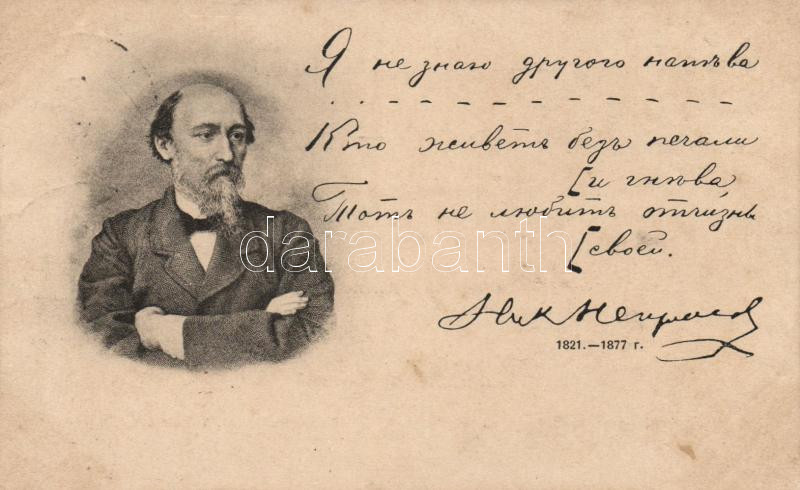 Я не знаю другого напѣва
.. - - - - - - - - - - - - - -
Кто живетъ безъ печали
[и гнѣва,
Тотъ не любитъ отчизны
[своей.
darabanth
Ник Некрасов
1821.—1877 г.